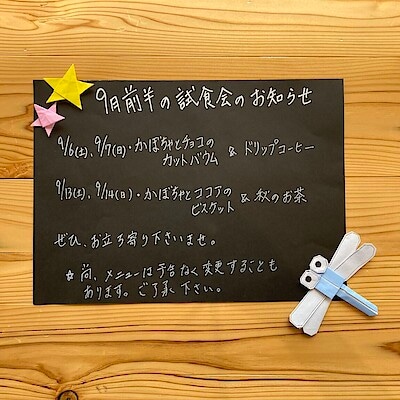 9月前半の試食会のお知らせ
9/6(土)、9/7(日)・かぼちゃとチョコの
カットバウム & ドリップコーヒー
9/13(土)、9/14(日)・かぼちゃとココアの
ビスケット & 秋のお茶
ぜひ、お立ち寄り下さいませ。
☆尚、メニューは予告なく変更することも
あります。ご了承下さい。